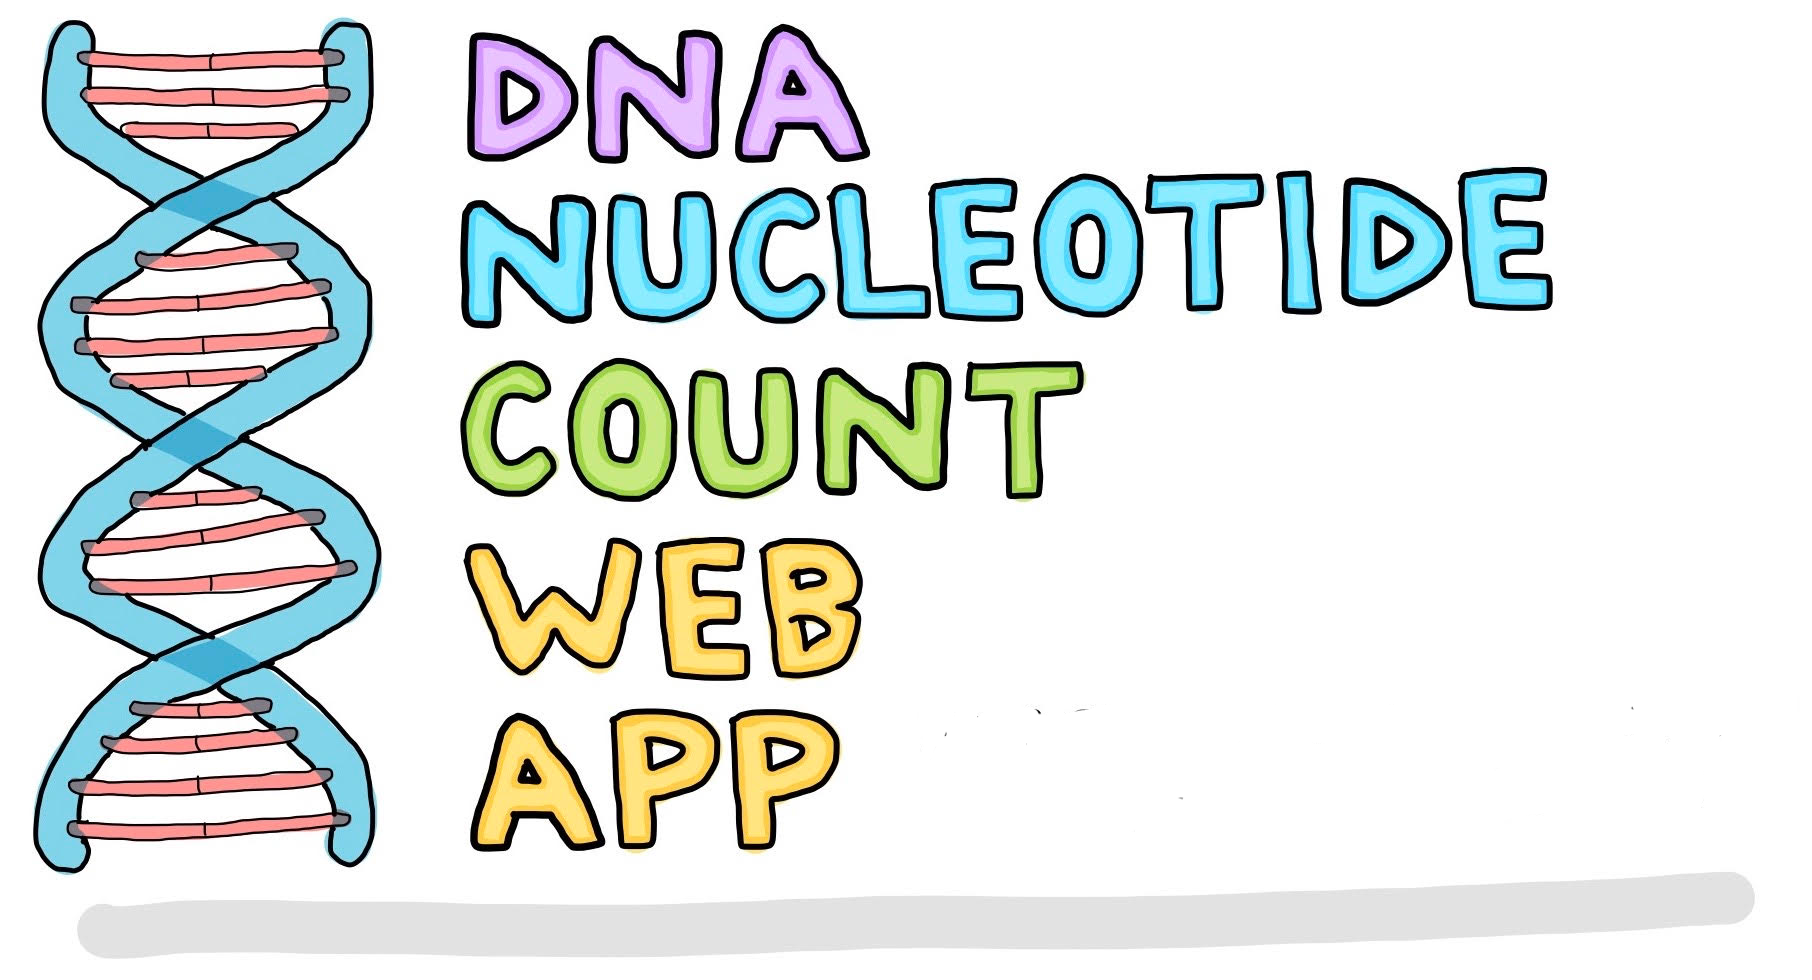 DNA
NUCLEOTIDE
COUNT
WEB
APP